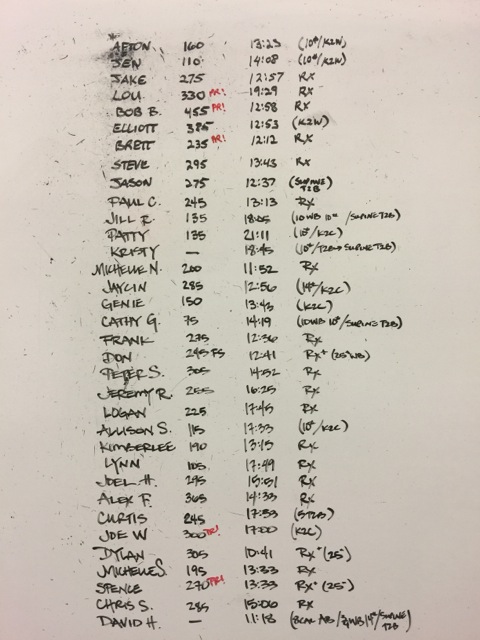 AFTON 160 13:23 (10#/K2W)
JEN 110 14:08 (10#/K2W)
JAKE 275 12:57 RX
LOU 330 PR! 19:29 RX
BOB B. 455 PR! 12:58 RX
ELLIOTT 385 12:53 (K2W)
BRETT 235 PR! 12:12 RX
STEVE 295 13:43 RX
JASON 275 12:37 (SUPINE T2B)
PAUL C. 245 13:13 RX
JILL R. 135 18:05 (10WB 10# /SUPINE T2B)
PATTY 135 21:11 (10#/K2C)
KRISTY — 18:45 (10#/T2B→SUPINE T2B)
MICHELLE N. 200 11:52 RX
JAYLIN 285 12:56 (14#/K2C)
GENIE 150 13:43 (K2C)
CATHY G. 75 14:19 (10WB 10#/SUPINE T2B)
FRANK 275 12:36 RX
DON 245 FS 12:41 RX+ (25#WB)
PETER S. 305 14:52 RX
JEREMY R. 255 16:25 RX
LOGAN 225 17:45 RX
ALLISON S. 115 17:33 (10#/K2C)
KIMBERLEE 190 13:15 RX
LYNN 105 17:49 RX
JOEL H. 295 15:51 RX
ALEX F. 365 14:33 RX
CURTIS 245 17:53 (ST2B)
JOE W 300 PR! 17:00 (K2C)
DYLAN 305 10:41 RX+ (25#)
MICHELLE S. 195 13:33 RX
SPENCE 270 PR! 13:33 RX+ (25#)
CHRIS S. 285 15:06 RX
DAVID H. — 11:18